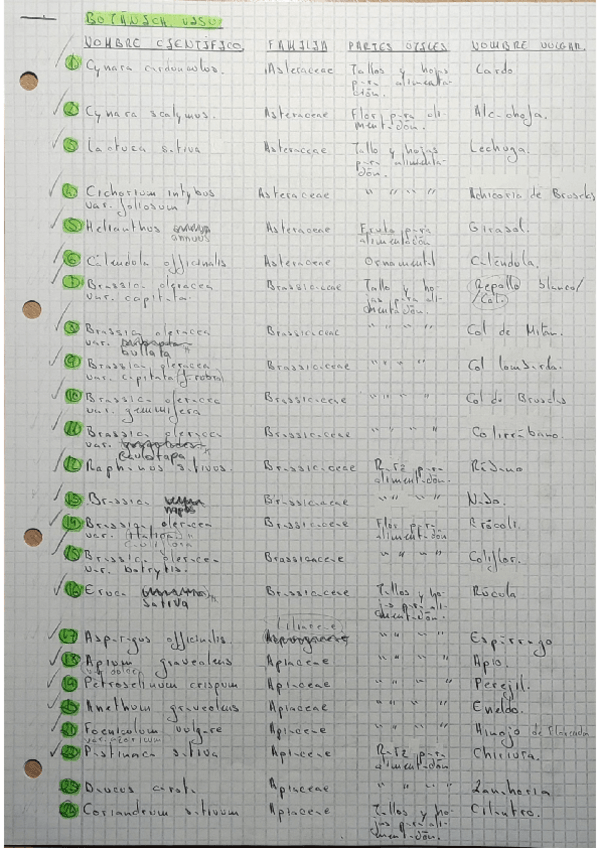 BOTÁNICA VISU
NOMBRE CIENTÍFICO. FAMILIA PARTES ÚTILES NOMBRE VULGAR.
1 Cynara cardunculus. Asteraceae Tallos y hojas Cardo
para alimenta-
ción.
2 Cynara scolymus. Asteraceae Flor para ali- Alcachofa.
mentación.
3 Lactuca sativa Asteraceae Tallo y hojas Lechuga.
para alimenta-
ción.
4 Cichorium intybus Asteraceae " " " " Achicoria de Bruselas
var. foliosum
5 Helianthus Asteraceae Fruto para Girasol.
annuus alimentación
6 Calendula officinalis Asteraceae Ornamental Caléndula.
7 Brassica oleracea Brassicaceae Tallo y ho- Repollo blanco/
var. capitata. jas para ali- Col.
mentación.
8 Brassica oleracea Brassicaceae " " " " Col de Milán.
var.
bullata
9 Brassica oleracea Brassicaceae " " " " Col lombarda.
var. capitata f. rubra
10 Brassica oleracea Brassicaceae " " " " Col de Bruselas
var. gemmifera
11 Brassica oleracea Brassicaceae " " " " Colirrábano
var.
12 Raphanus sativus. Brassicaceae Raíz para Rábano
alimentación.
13 Brassica Brassicaceae " " " " Nabo.
napus
14 Brassica oleracea Brassicaceae Flor para Brócoli.
var. italica alimentación.
15 Brassica oleracea Brassicaceae " " " " Coliflor.
var. botrytis.
16 Eruca Brassicaceae Tallos y ho- Rúcula
sativa jas para ali-
mentación.
Liliaceae
17 Asparagus officinalis. " " " " Espárrago
18 Apium graveolens Apiaceae " " " " Apio.
var. dulce
19 Petroselinum crispum Apiaceae " " " " Perejil.
20 Anethum graveolens Apiaceae " " " " Eneldo.
21 Foeniculum vulgare Apiaceae " " " " Hinojo de Florencia
22 Pastinaca sativa Apiaceae Raíz para Chirivía.
alimentación.
23 Daucus carota. Apiaceae " " " " Zanahoria
24 Coriandrum sativum Apiaceae Tallos y ho- Cilantro.
jas para ali-
mentación.